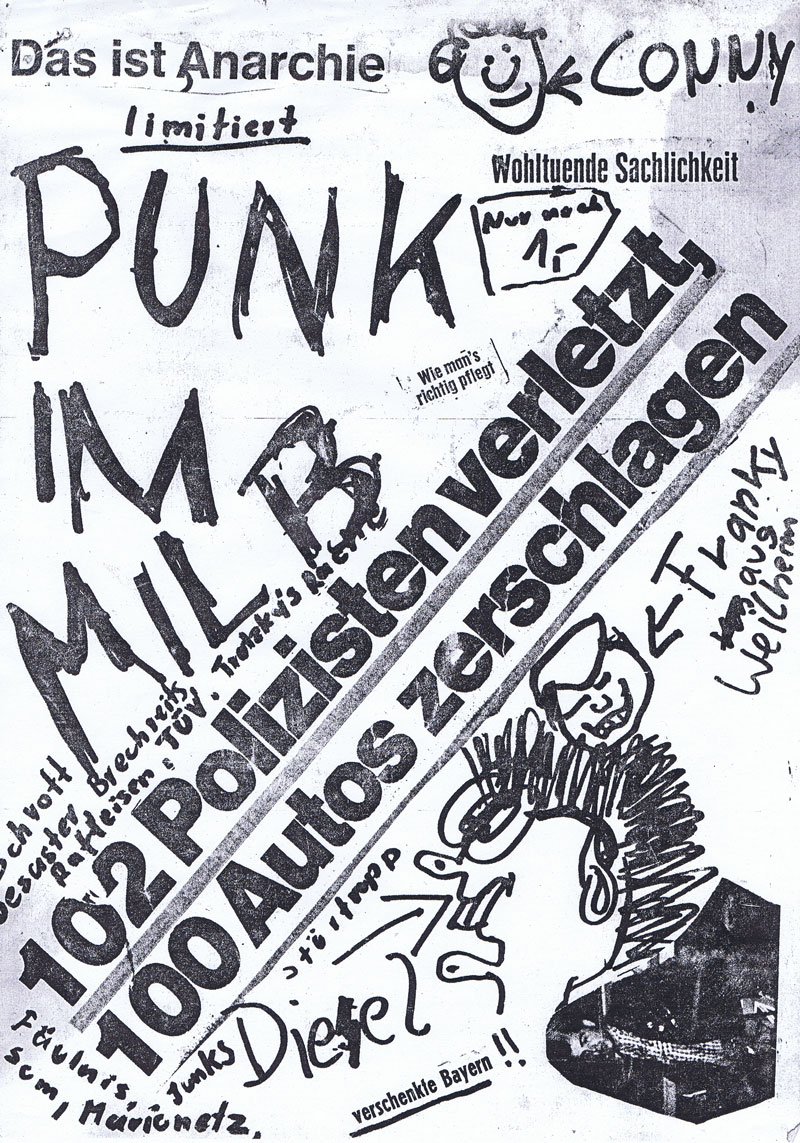 Das ist Anarchie
CONNY
limitiert
Wohltuende Sachlichkeit
PUNK
Nur noch
1,-
Wie man's
richtig pflegt
IM
MIL B
102 Polizisten verletzt,
100 Autos zerschlagen
Frank
aus
Weilheim
Schrott
Desaster Brechreiz
Raffeisen TÜV. Trotzky's
störtrupp
Diesel
Fäulnis, Junks
scum, Marionetz,
verschenkte Bayern!!